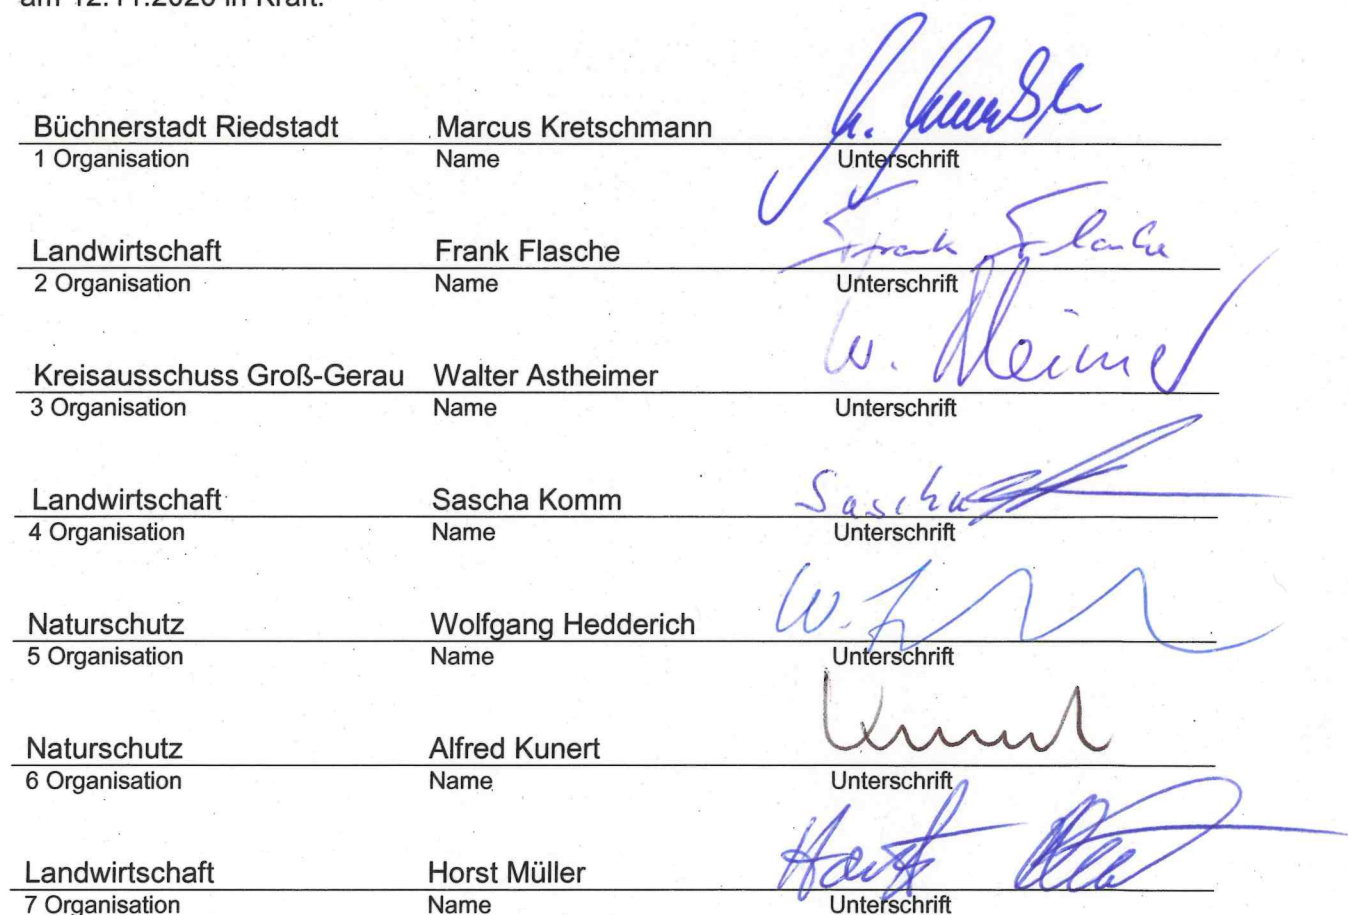 am 12.11.2020 in Kraft.
Büchnerstadt Riedstadt Marcus Kretschmann
1 Organisation Name Unterschrift
Landwirtschaft Frank Flasche Frank Flasche
2 Organisation Name Unterschrift
Kreisausschuss Groß-Gerau Walter Astheimer W.
3 Organisation Name Unterschrift
Landwirtschaft Sascha Komm Sascha
4 Organisation Name Unterschrift
Naturschutz Wolfgang Hedderich W.
5 Organisation Name Unterschrift
Naturschutz Alfred Kunert Kunert
6 Organisation Name Unterschrift
Landwirtschaft Horst Müller Horst
7 Organisation Name Unterschrift